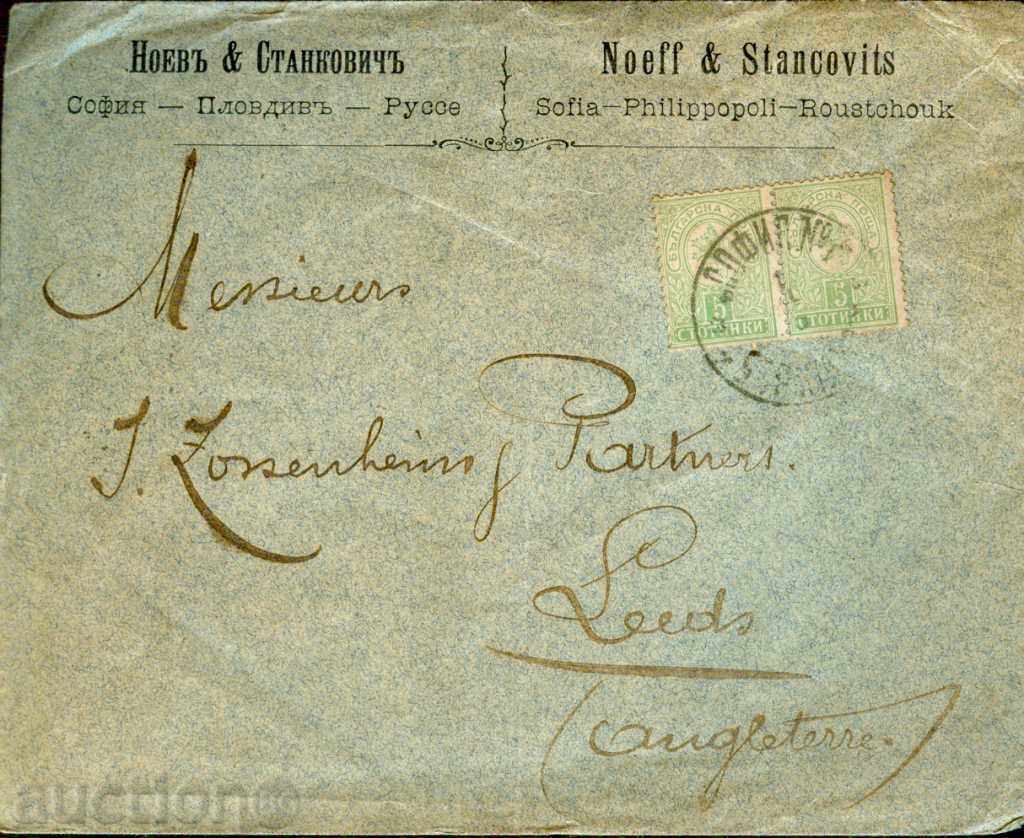 Ноевъ & Станковичъ
София — Пловдивъ — Руссе
Noeff & Stancovits
Sofia—Philippopoli—Roustchouk
5 5
СТОТИНКИ СТОТИНКИ
СОФИЯ
Messieurs
J. Zossenheim & Partners.
Leeds
(Angleterre.)
auction